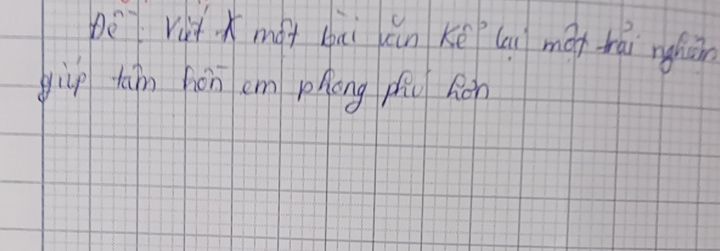 Đề: Viết một bài văn kể lại một trải nghiệm
giúp tâm hồn em phong phú hơn